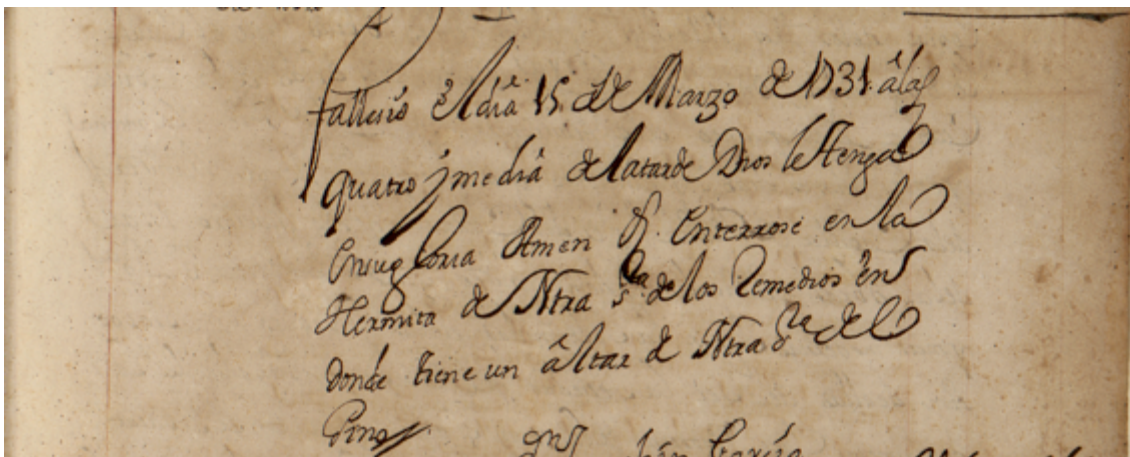 fallesio el dia 15 de Marzo de 1731 â las
quatro y media de la tarde Dios le tenga
en su gloria Amen y Enterrose en la
Hermita de Ntra Sra de los Remedios en
donde tiene un âltar de Ntra Sra del
Pino
Garcia